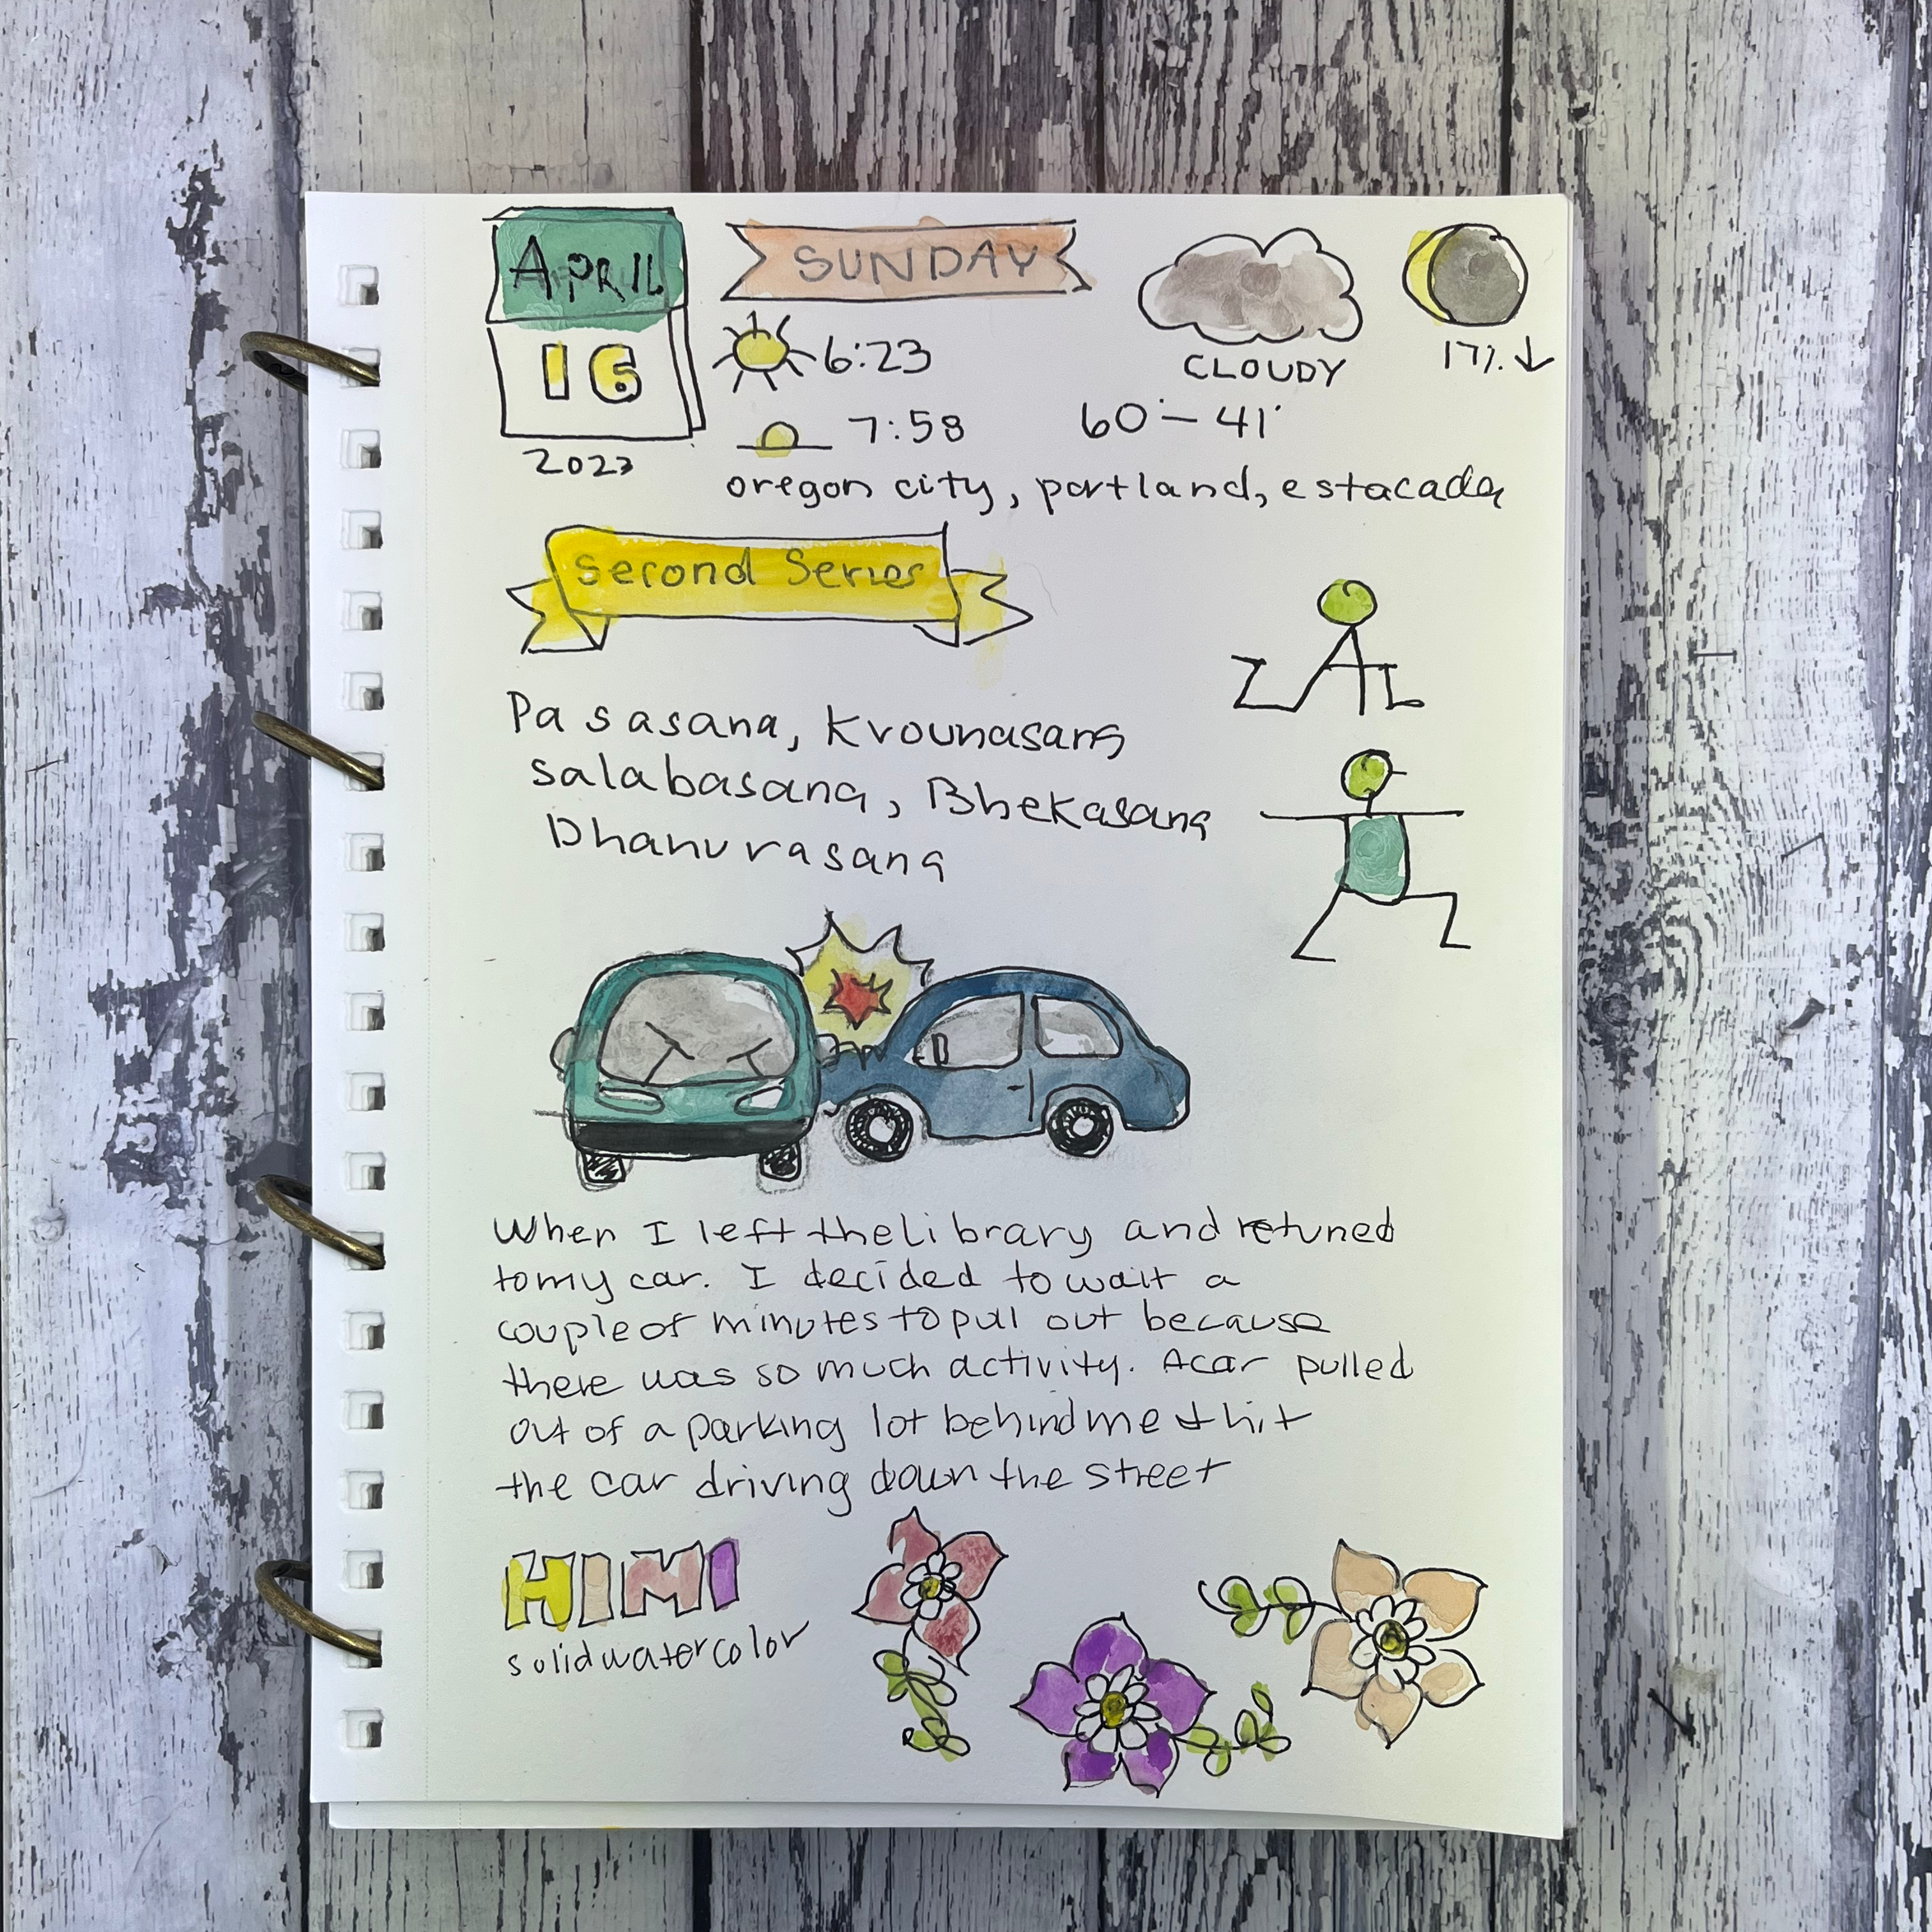 APRIL
16
2023
SUNDAY
6:23
7:58
CLOUDY
60°-41°
17% ↓
oregon city, portland, estacada
Second Series
Pasasana, Krounasana
salabasana, Bhekasana
Dhanurasana
When I left the library and retuned
to my car. I decided to wait a
couple of minutes to pull out because
there was so much activity. A car pulled
out of a parking lot behind me + hit
the car driving down the street
HIMI
solid watercolor